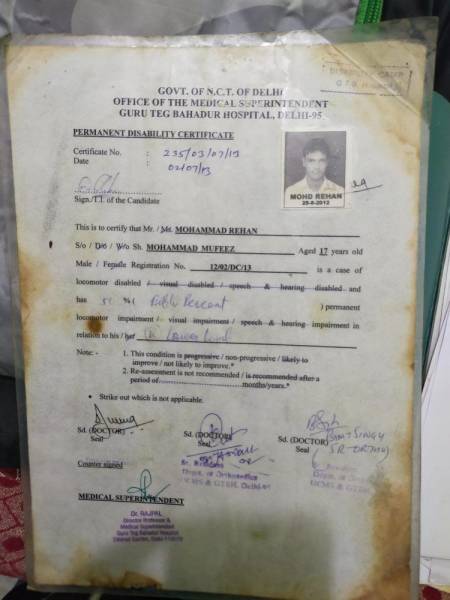 DISABILITY CAMP
GOVT. OF N.C.T. OF DELHI
OFFICE OF THE MEDICAL SUPERINTENDENT
GURU TEG BAHADUR HOSPITAL, DELHI-95
PERMANENT DISABILITY CERTIFICATE
Certificate No. : 235/03/07/13
Date : 02/07/13
MOHD REHAN
25-6-2012
Sign./T.I. of the Candidate
This is to certify that Mr. / Ms. MOHAMMAD REHAN
S/o / D/o / W/o Sh. MOHAMMAD MUFEEZ Aged 17 years old
Male / Female Registration No. 12/02/DC/13 is a case of
locomotor disabled / visual disabled / speech & hearing disabled and
has % ( Percent ) permanent
locomotor impairment / visual impairment / speech & hearing impairment in
relation to his / her Lower Limb
Note: - 1. This condition is progressive / non-progressive / likely to
improve / not likely to improve.*
2. Re-assessment is not recommended / is recommended after a
period of..............................months/years.*
• Strike out which is not applicable.
Sd. (DOCTOR) Sd. (DOCTOR) Sd. (DOCTOR)
Seal Seal Seal
SR ORTHO
Sr. Resident
Deptt. of Orthopaedics
UCMS & GTBH, Delhi-95
Counter signed
MEDICAL SUPERINTENDENT
Dr. RAJPAL
Director Professor &
Medical Superintendent
Guru Teg Bahadur Hospital